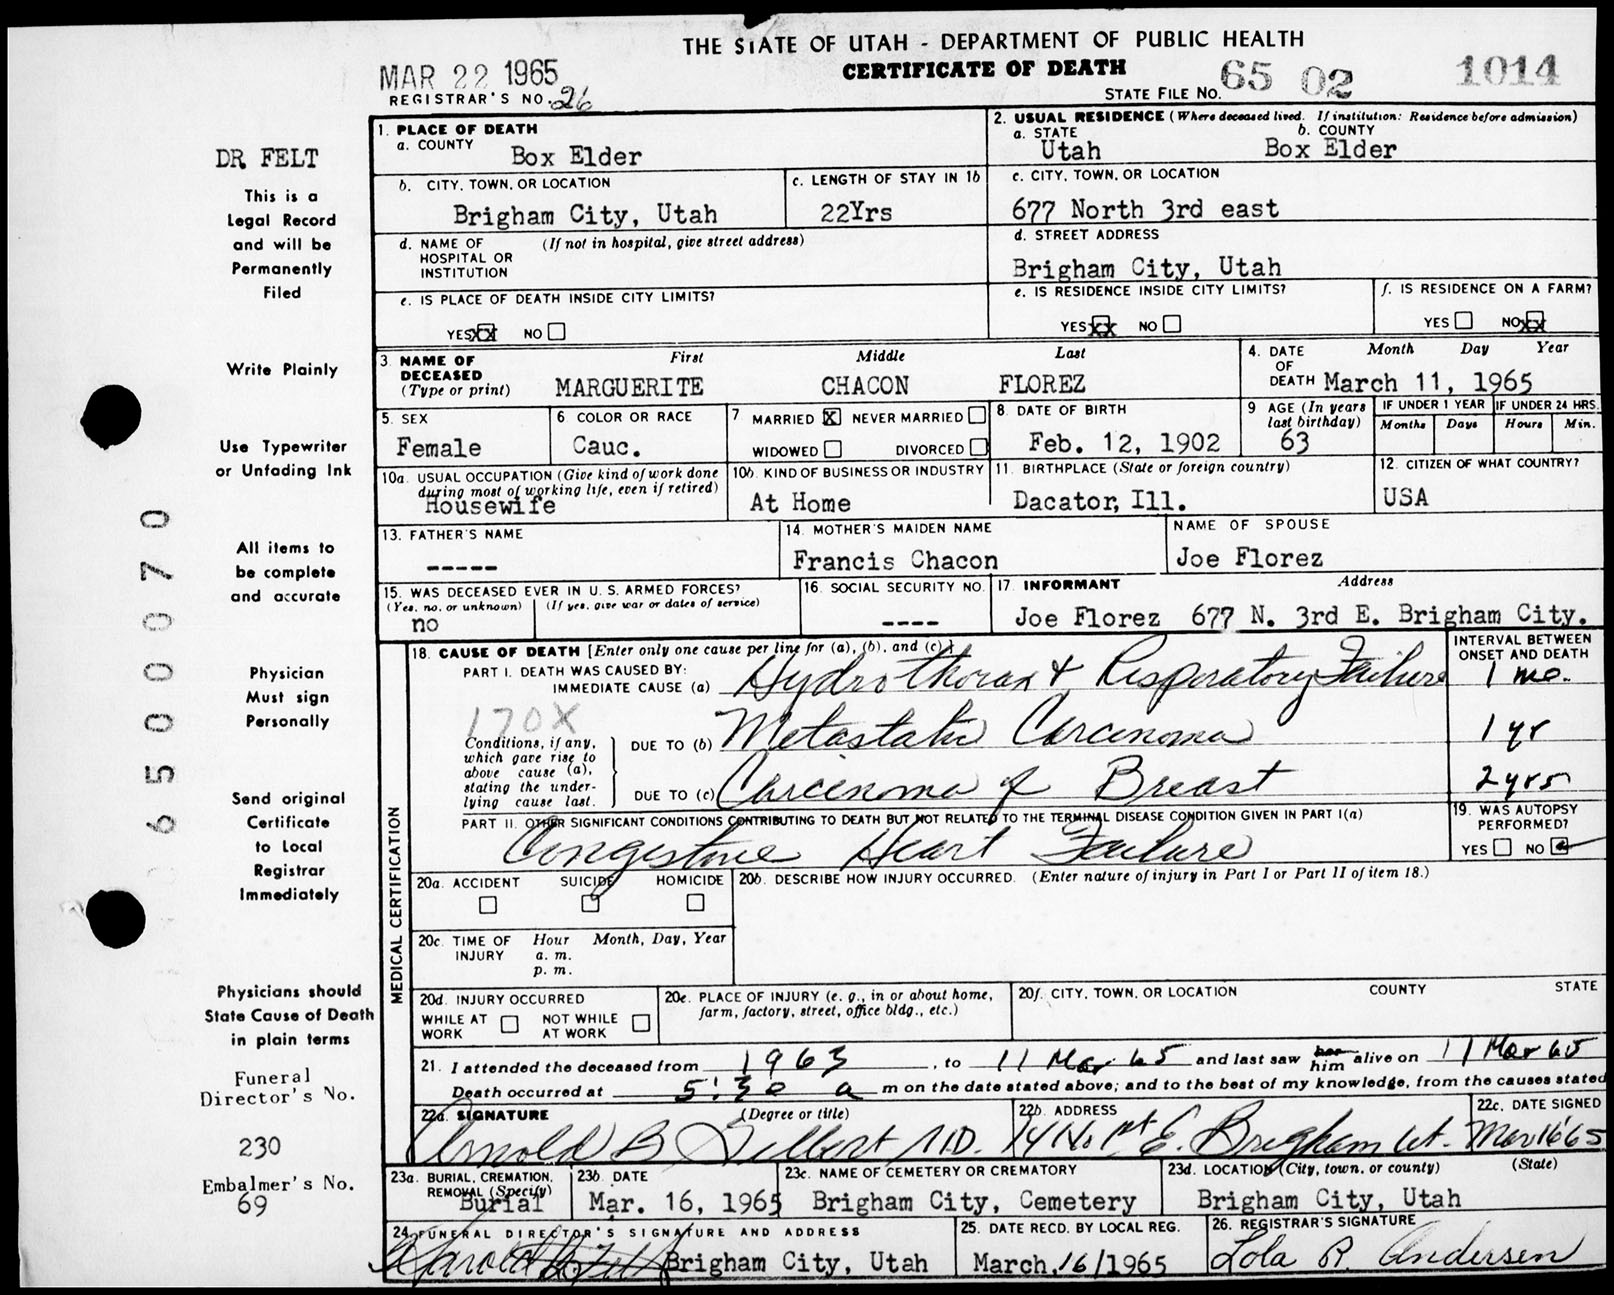 THE STATE OF UTAH - DEPARTMENT OF PUBLIC HEALTH
CERTIFICATE OF DEATH
MAR 22 1965
REGISTRAR'S NO. 26
STATE FILE NO. 65 02 1014
DR FELT
This is a
Legal Record
and will be
Permanently
Filed
Write Plainly
Use Typewriter
or Unfading Ink
All items to
be complete
and accurate
Physician
Must sign
Personally
Send original
Certificate
to Local
Registrar
Immediately
Physicians should
State Cause of Death
in plain terms
Funeral
Director's No.
230
Embalmer's No.
69
65000070
1. PLACE OF DEATH
a. COUNTY
Box Elder
2. USUAL RESIDENCE (Where deceased lived. If institution: Residence before admission)
a. STATE b. COUNTY
Utah Box Elder
b. CITY, TOWN, OR LOCATION
Brigham City, Utah
c. LENGTH OF STAY IN 1b
22Yrs
c. CITY, TOWN, OR LOCATION
677 North 3rd east
d. NAME OF (If not in hospital, give street address)
HOSPITAL OR
INSTITUTION
d. STREET ADDRESS
Brigham City, Utah
e. IS PLACE OF DEATH INSIDE CITY LIMITS?
YES XX NO
e. IS RESIDENCE INSIDE CITY LIMITS?
YES XX NO
f. IS RESIDENCE ON A FARM?
YES NO XX
3. NAME OF First Middle Last
DECEASED
(Type or print) MARGUERITE CHACON FLOREZ
4. DATE Month Day Year
OF
DEATH March 11, 1965
5. SEX
Female
6 COLOR OR RACE
Cauc.
7 MARRIED X NEVER MARRIED
WIDOWED DIVORCED
8. DATE OF BIRTH
Feb. 12, 1902
9 AGE (In years
last birthday)
63
IF UNDER 1 YEAR
Months Days
IF UNDER 24 HRS.
Hours Min.
10a. USUAL OCCUPATION (Give kind of work done
during most of working life, even if retired)
Housewife
10b. KIND OF BUSINESS OR INDUSTRY
At Home
11. BIRTHPLACE (State or foreign country)
Dacator, Ill.
12. CITIZEN OF WHAT COUNTRY?
USA
13. FATHER'S NAME
-----
14. MOTHER'S MAIDEN NAME
Francis Chacon
NAME OF SPOUSE
Joe Florez
15. WAS DECEASED EVER IN U. S. ARMED FORCES?
(Yes, no, or unknown) (If yes, give war or dates of service)
no
16. SOCIAL SECURITY NO.
----
17. INFORMANT Address
Joe Florez 677 N. 3rd E. Brigham City.
MEDICAL CERTIFICATION
18. CAUSE OF DEATH [Enter only one cause per line for (a), (b), and (c)]
INTERVAL BETWEEN
ONSET AND DEATH
PART I. DEATH WAS CAUSED BY:
IMMEDIATE CAUSE (a) Hydrothorax & Respiratory Failure 1 mo.
170X
Conditions, if any,
which gave rise to
above cause (a),
stating the under-
lying cause last.
DUE TO (b) Metastatic Carcinoma 1 yr
DUE TO (c) Carcinoma of Breast 2 yrs
PART II. OTHER SIGNIFICANT CONDITIONS CONTRIBUTING TO DEATH BUT NOT RELATED TO THE TERMINAL DISEASE CONDITION GIVEN IN PART I(a)
Congestive Heart Failure
19. WAS AUTOPSY
PERFORMED?
YES NO
20a. ACCIDENT SUICIDE HOMICIDE
20b. DESCRIBE HOW INJURY OCCURRED. (Enter nature of injury in Part I or Part II of item 18.)
20c. TIME OF Hour Month, Day, Year
INJURY a. m.
p. m.
20d. INJURY OCCURRED
WHILE AT NOT WHILE
WORK AT WORK
20e. PLACE OF INJURY (e. g., in or about home,
farm, factory, street, office bldg., etc.)
20f. CITY, TOWN, OR LOCATION COUNTY STATE
21. I attended the deceased from 1963, to 11 Mar 65 and last saw her him alive on 11 Mar 65
Death occurred at 5:30 a m on the date stated above; and to the best of my knowledge, from the causes stated
22a. SIGNATURE (Degree or title)
Arnold B Gilbert M.D.
22b. ADDRESS
14 No 1st E. Brigham Ut.
22c. DATE SIGNED
Mar 16 65
23a. BURIAL, CREMATION,
REMOVAL (Specify)
Burial
23b. DATE
Mar. 16, 1965
23c. NAME OF CEMETERY OR CREMATORY
Brigham City, Cemetery
23d. LOCATION (City, town, or county) (State)
Brigham City, Utah
24. FUNERAL DIRECTOR'S SIGNATURE AND ADDRESS
Harold B Felt Brigham City, Utah
25. DATE RECD. BY LOCAL REG.
March, 16/1965
26. REGISTRAR'S SIGNATURE
Lola R. Andersen